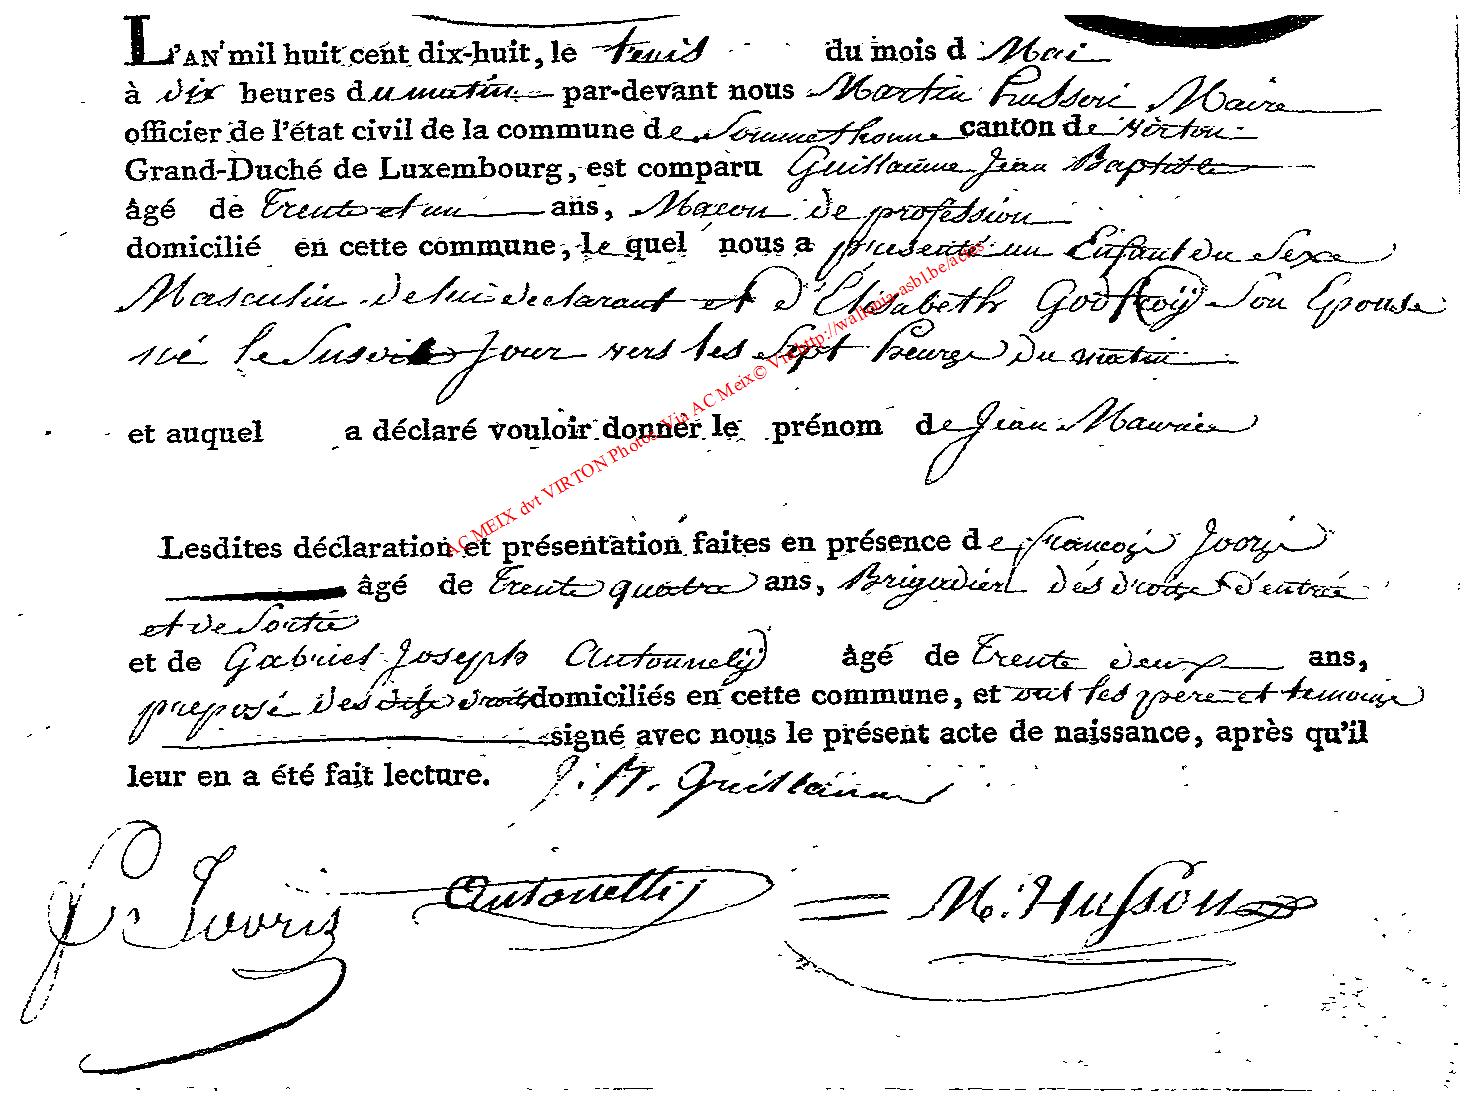 L'AN mil huit cent dix-huit, le trois du mois d Mai
à dix heures du matin par-devant nous Martin husson Maire
officier de l'état civil de la commune de Sommethonne canton de virton
Grand-Duché de Luxembourg, est comparu Guillaume Jean Baptiste
âgé de Trente et un ans, Macon de profession
domicilié en cette commune, le quel nous a presenté un Enfant du Sexe
Masculin de lui declarant et d'Elisabeth Godfroij Son Epouse
né le Susdit Jour vers les Sept heures du matin
et auquel a déclaré vouloir donner le prénom de Jean Maurice
Lesdites déclaration et présentation faites en présence de françois Jooris
âgé de Trente quatre ans, Brigadier dés droits d'entrée
et de Sortie
et de Gabriel Joseph Antonnelij âgé de Trente deux ans,
preposé des dits droits domiciliés en cette commune, et ont les pere et temoins
signé avec nous le présent acte de naissance, après qu'il
leur en a été fait lecture. J. B. Guillaume
Jooris Antonellij M. Husson
AC MEIX dvt VIRTON Photos Via AC Meix© Via http://wallonia-asbl.be/actes